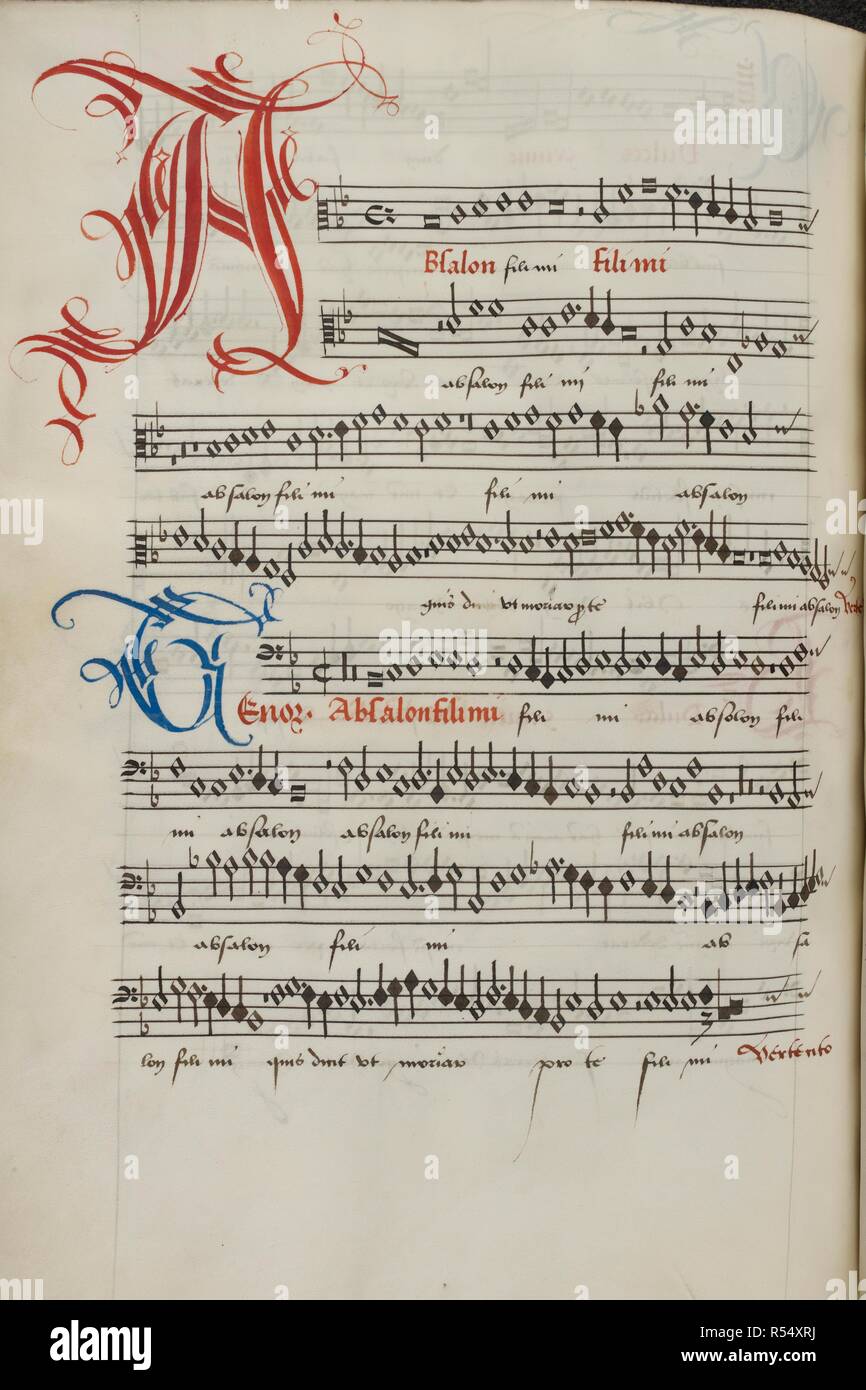 ABsalon fili mi fili mi
absalon fili mi fili mi
absalon fili mi fili mi absalon
quis dni vt moriar p te fili mi absalon Verte
TEnor. Absalon fili mi fili mi absolon fili
mi absalon absalon fili mi fili mi absalon
absalon fili mi ab sa
lon fili mi quis dicit vt moriar pro te fili mi Verte cito
alamy
Image ID: R54XRJ
www.alamy.com